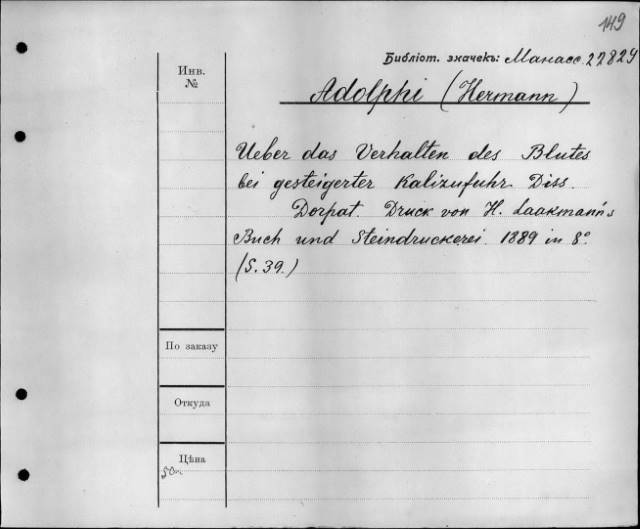 149
Библіот. значекъ: Манасс. 22829
Инв.
№
Adolphi (Hermann)
Ueber das Verhalten des Blutes
bei gesteigerter Kalizufuhr. Diss.
Dorpat. Druck von H. Laakmann's
Buch und Steindruckerei. 1889 in 8°
(S. 39.)
По заказу
Откуда
Цѣна
50